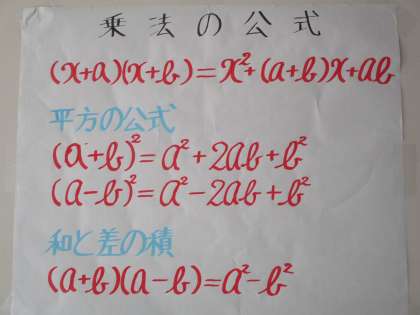 乗法の公式
(x+a)(x+b)=x²+(a+b)x+ab
平方の公式
(a+b)²=a²+2ab+b²
(a-b)²=a²-2ab+b²
和と差の積
(a+b)(a-b)=a²-b²